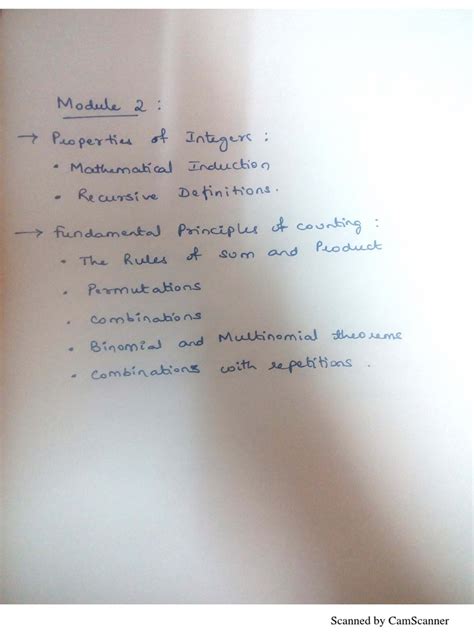 Module 2 :
→ Properties of Integers :
• Mathematical Induction
• Recursive Definitions.
→ Fundamental Principles of counting :
• The Rules of sum and Product
• Permutations
• combinations
• Binomial and Multinomial theorems
• combinations with repetitions .
Scanned by CamScanner